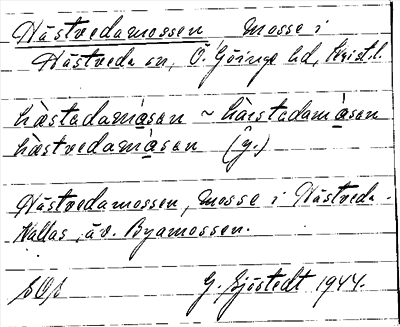 Hästvedamossen mosse i
Hästveda sn, Ö. Göinge hd, Krist. l.
hästadamåsan ~ hästadamåsan
hästvedamåsan (y.)
Hästvedamossen, mosse i Hästveda.
Kallas äv. Byamossen.
G. Sjöstedt 1944.